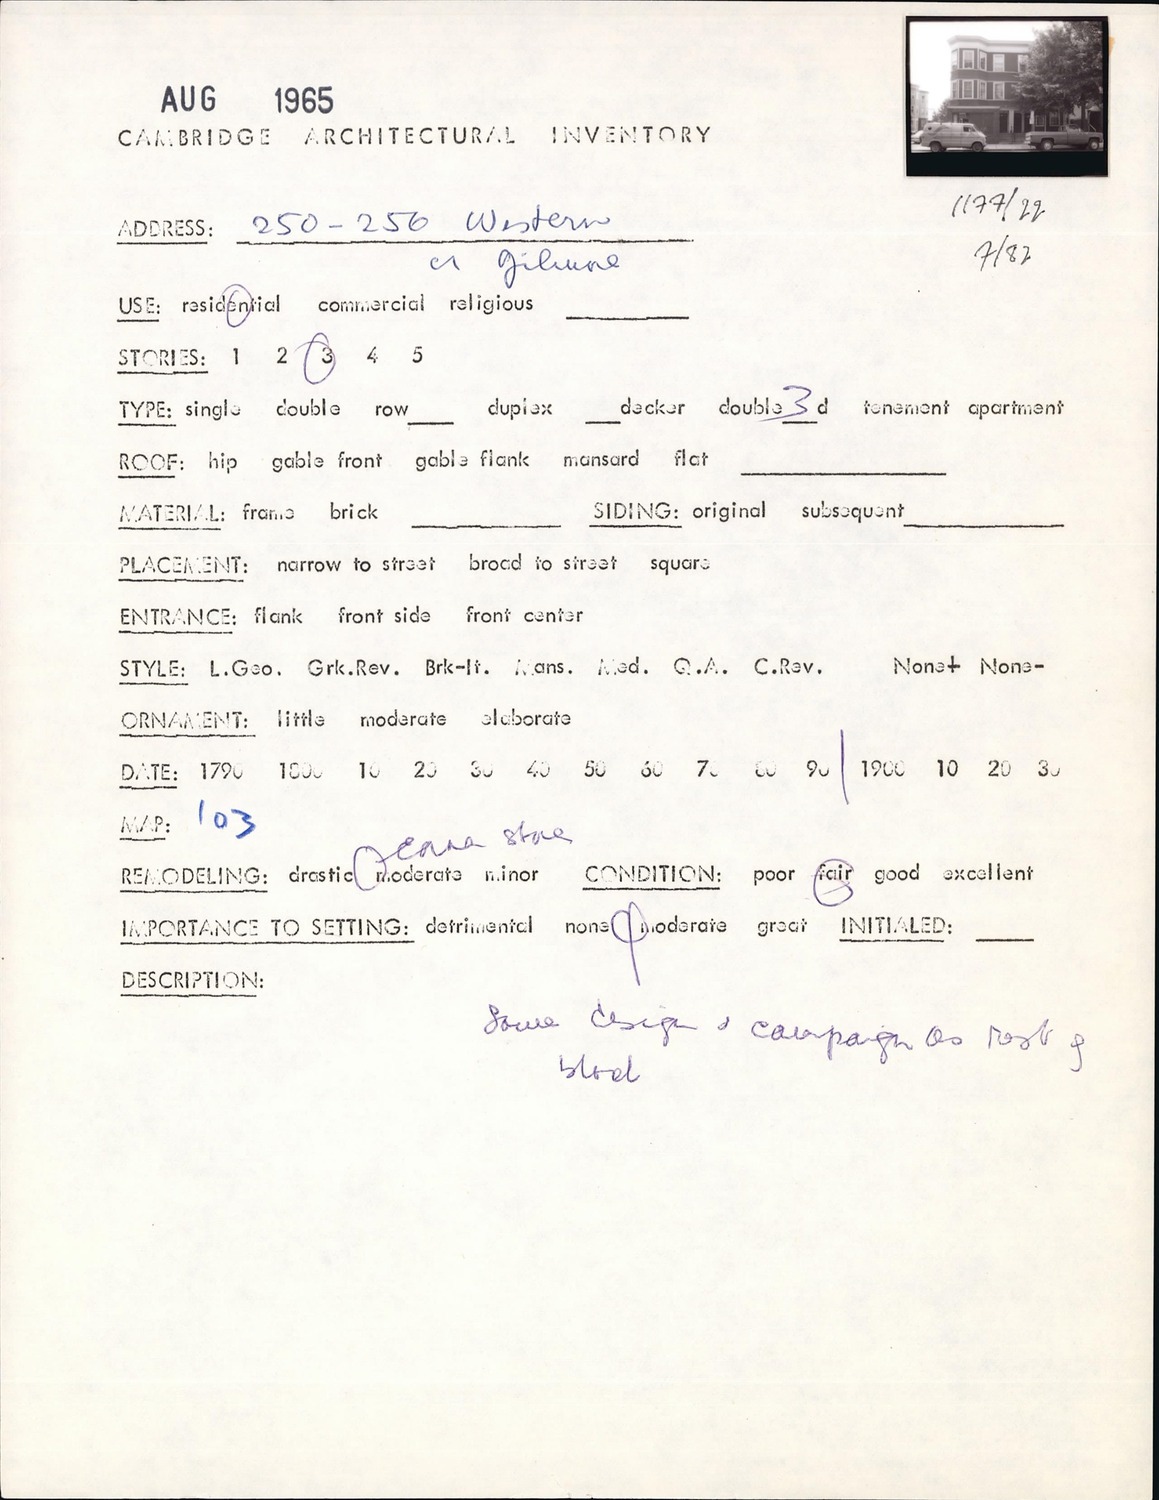 AUG 1965
CAMBRIDGE ARCHITECTURAL INVENTORY
1177/22
7/82
ADDRESS: 250-256 Western
Gilmore
USE: residential commercial religious
STORIES: 1 2 3 4 5
TYPE: single double row____ duplex ___decker double 3 d tenement apartment
ROOF: hip gable front gable flank mansard flat
MATERIAL: frame brick SIDING: original subsequent
PLACEMENT: narrow to street broad to street square
ENTRANCE: flank front side front center
STYLE: L.Geo. Grk.Rev. Brk-It. Mans. Med. Q.A. C.Rev. None+ None-
ORNAMENT: little moderate elaborate
DATE: 1790 1800 10 20 30 40 50 60 70 80 90 1900 10 20 30
MAP: 103
store
REMODELING: drastic moderate minor CONDITION: poor fair good excellent
IMPORTANCE TO SETTING: detrimental none moderate great INITIALED:
DESCRIPTION:
Same design & campaign as rest of
block